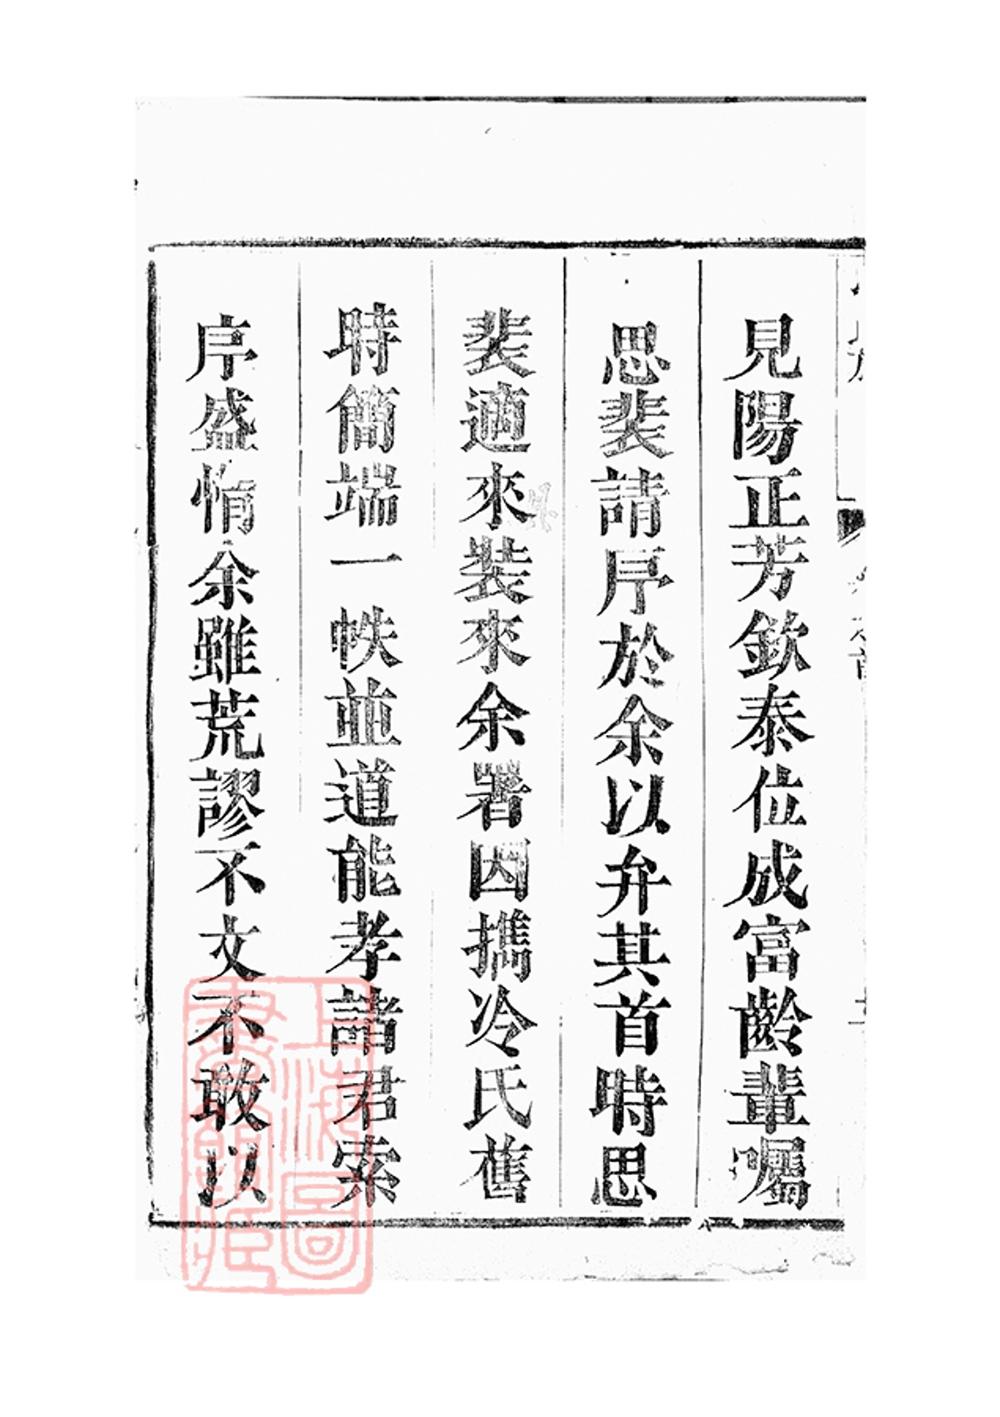 見陽正芳欽泰位成富齡輩囑
思裴請序於余以弁其首時思
裴適來裝來余署因攜冷氏舊
時簡端一帙並道能孝諸君索
序盛情余雖荒謬不文不敢以
上海圖
書館藏